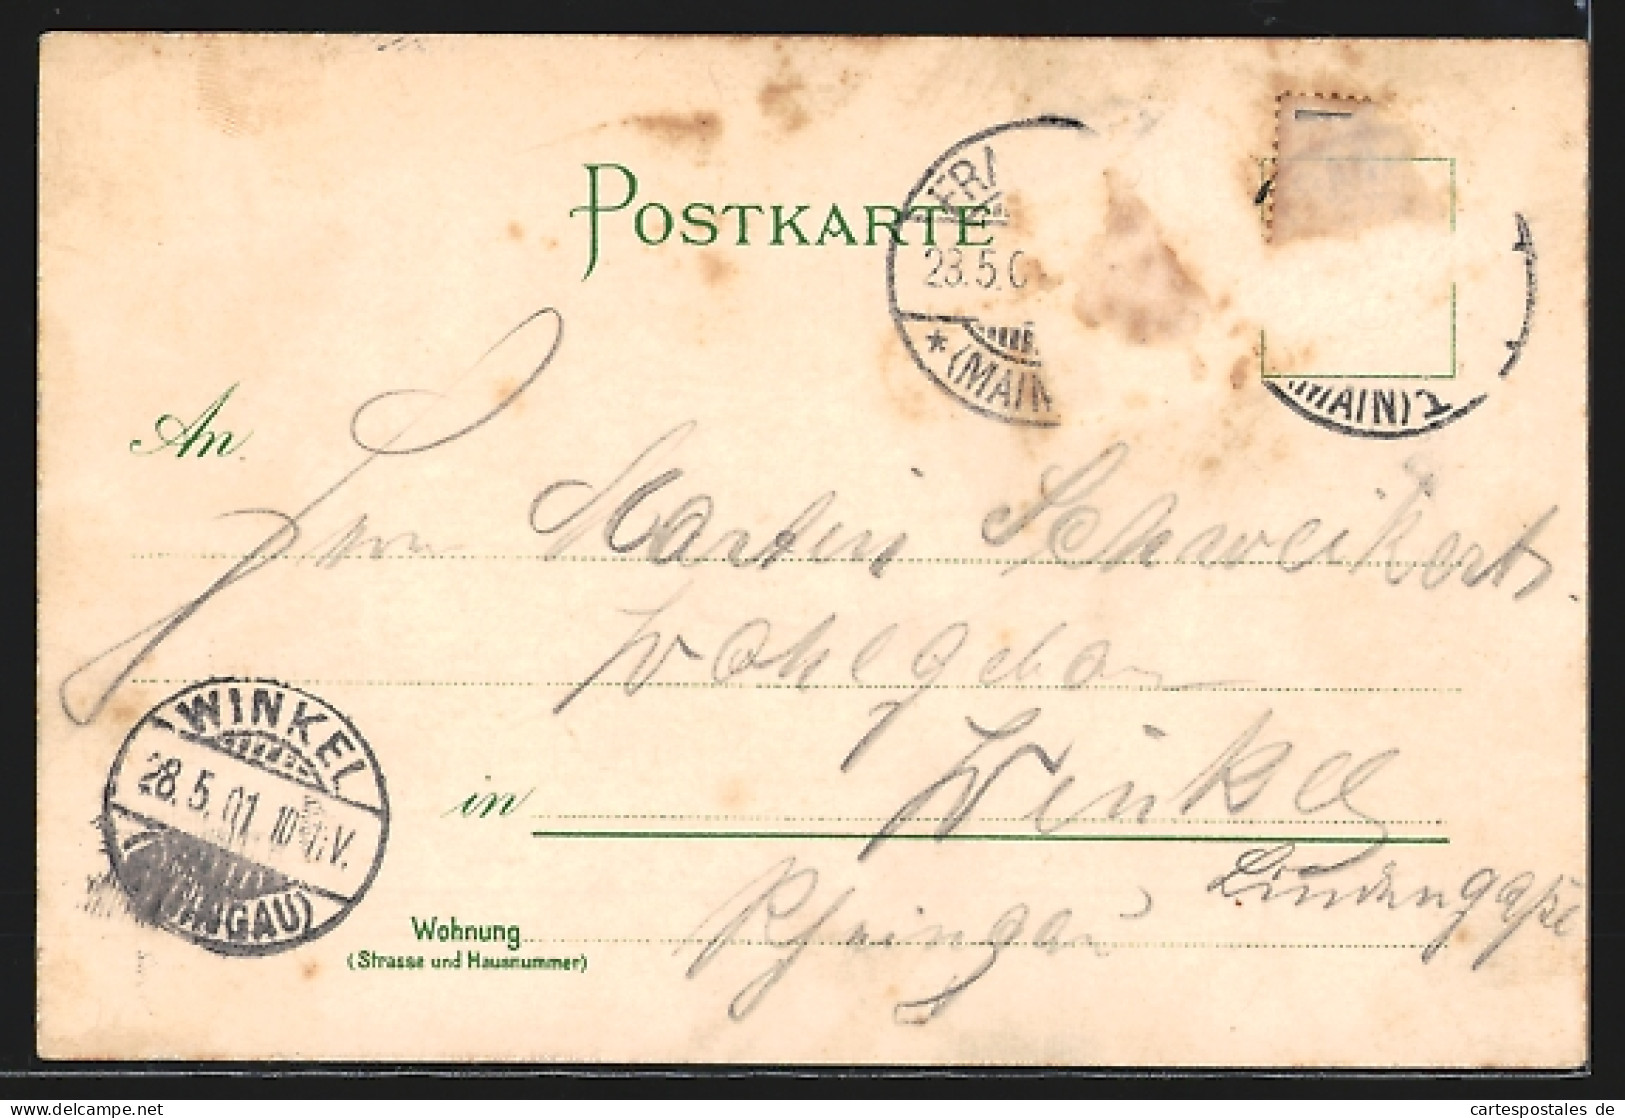 POSTKARTE
FRA
28.5.0
* (MAIN
(MAIN) 1
An
Herrn Martin Schweikert
Wohlgeboren
in Winkel
Lindengasse
Rheingau
Wohnung
(Strasse und Hausnummer)
WINKEL
28.5.01. 10-11.V.
INGAU)
Delcampe.net
cartespostales de